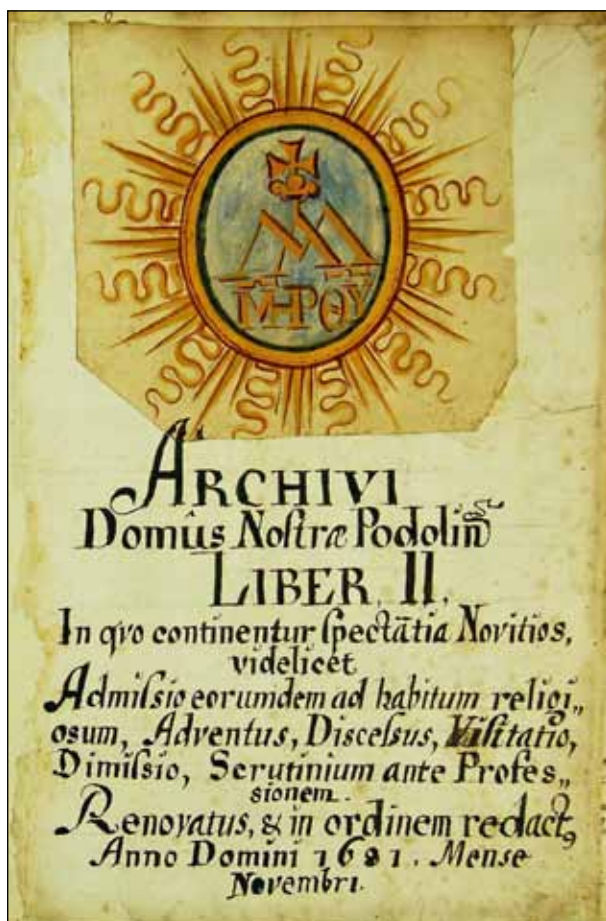 MA
M-HP ΘΥ
ARCHIVI
Domûs Noſtræ Podolin̄
LIBER. II.
In qvo continentur ſpectātia Novitios,
videlicet
Admiſsio eorumdem ad habitum religi„
oſum, Adventus, Diſceſsus, Viſitatio,
Dimiſsio, Scrutinium ante Profes„
sionem.
Renovatus, & in ordinem redactꝰ
Anno Domini 1681. Mense
Novembri.